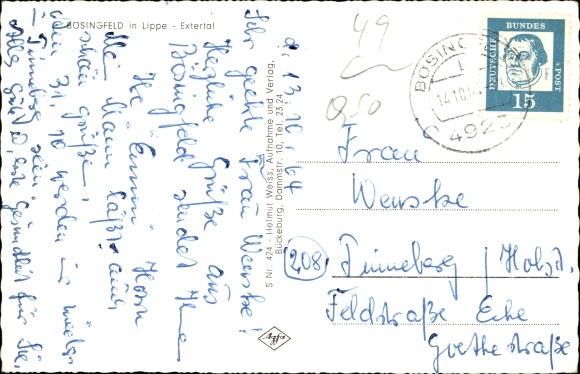 BÖSINGFELD in Lippe - Extertal
d. 13.10.64
Sehr geehrte Frau Wenske!
Herzliche Grüße aus
Bösingfeld sendet Ihnen
Ihre Emmi Horn
Mein Mann läßt auch
schön grüßen,
Den 31.10 werden wir wieder
in Pinneberg sein.
Alles Gute, u. gute Gesundheit für Sie,
S Nr. 424 - Helmut Weiss, Aufnahme und Verlag,
Bückeburg, Dammstr. 10, Tel. 23 24
49
0,50
DEUTSCHE BUNDESPOST
15
BÖSING
14.10.64
4923
Frau
Wenske
(208) Pinneberg / Holst.
Feldstraße Ecke
Goethestraße